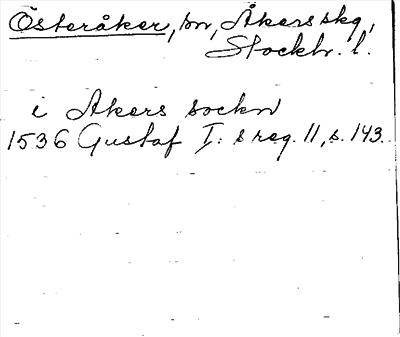 Österåker, sn, Åkers skg,
Stockh. l.
i Akers sockn
1536 Gustaf I: s reg. 11, s. 143.